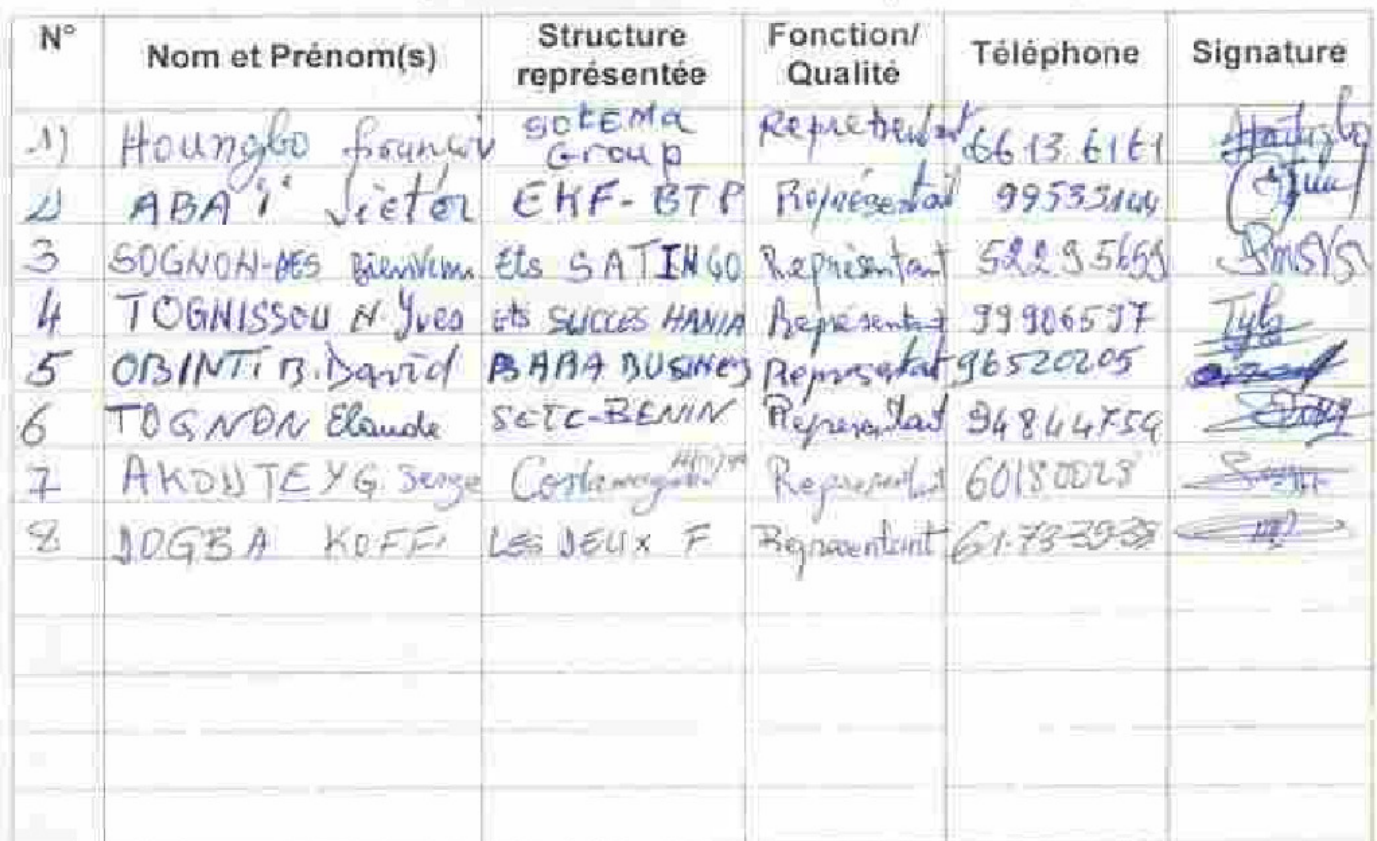 N° Nom et Prénom(s) Structure représentée Fonction/Qualité Téléphone Signature
1) Houngbo SOTEMA Group Représentant 66 13 6161
2) ABAÏ Victor EKF-BTP Représentant 99533144
3 SOGNON-DES Bienvenu Ets SATINGO Représentant 52295659
4 TOGNISSOU N. Yves Ets SUCCES HANIA Représentant 99906597
5 OBINTI B. David BABA BUSINES Représentant 96520205
6 TOGNON Claude SETC-BENIN Représentant 94844754
7 AKOUTEY G. Serge Représentant 60180028
8 DOGBA KOFFI LES DEUX F Représentant